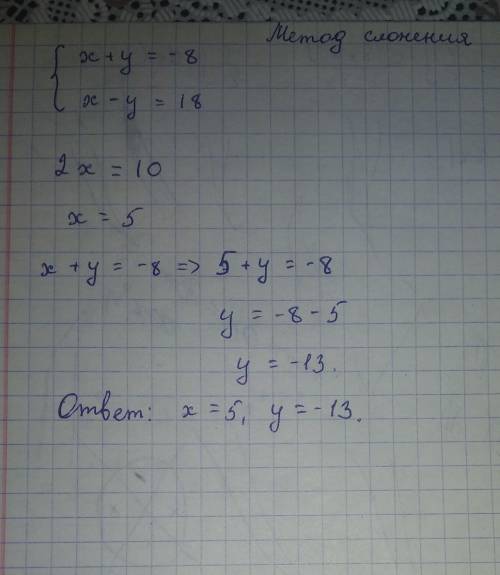 Метод сложения
x + y = -8
x - y = 18
2x = 10
x = 5
x + y = -8 => 5 + y = -8
y = -8 - 5
y = -13.
Ответ: x = 5, y = -13.